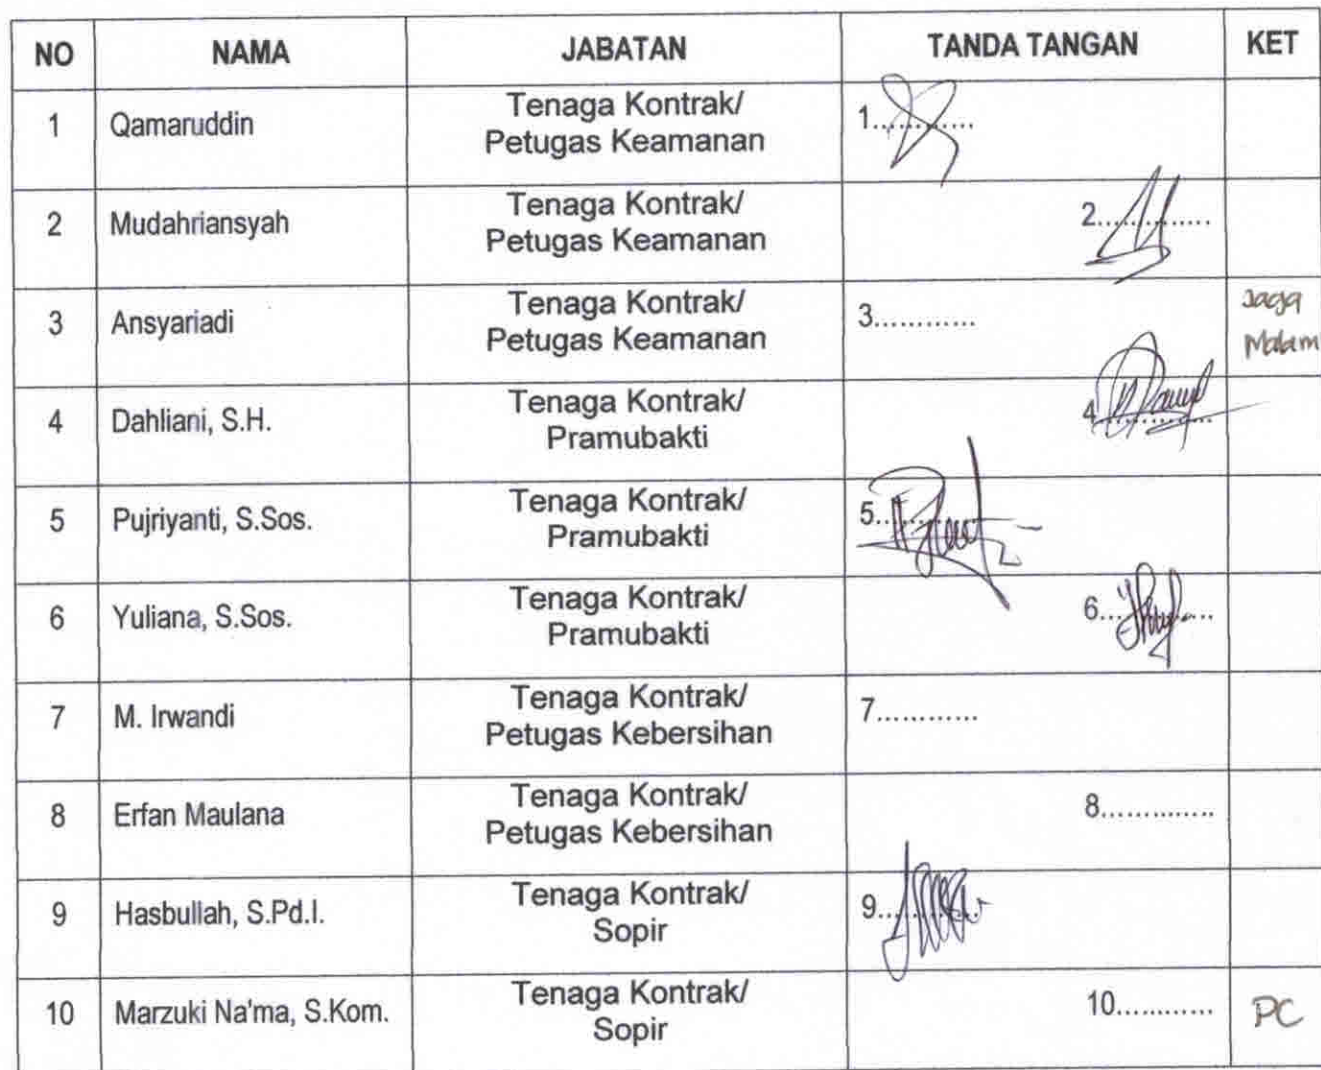 NO NAMA JABATAN TANDA TANGAN KET
1 Qamaruddin Tenaga Kontrak/
Petugas Keamanan 1............
2 Mudahriansyah Tenaga Kontrak/
Petugas Keamanan 2..............
3 Ansyariadi Tenaga Kontrak/
Petugas Keamanan 3............ Jaga
Malam
4 Dahliani, S.H. Tenaga Kontrak/
Pramubakti 4..............
5 Pujriyanti, S.Sos. Tenaga Kontrak/
Pramubakti 5............
6 Yuliana, S.Sos. Tenaga Kontrak/
Pramubakti 6..............
7 M. Irwandi Tenaga Kontrak/
Petugas Kebersihan 7............
8 Erfan Maulana Tenaga Kontrak/
Petugas Kebersihan 8..............
9 Hasbullah, S.Pd.I. Tenaga Kontrak/
Sopir 9............
10 Marzuki Na'ma, S.Kom. Tenaga Kontrak/
Sopir 10............ PC